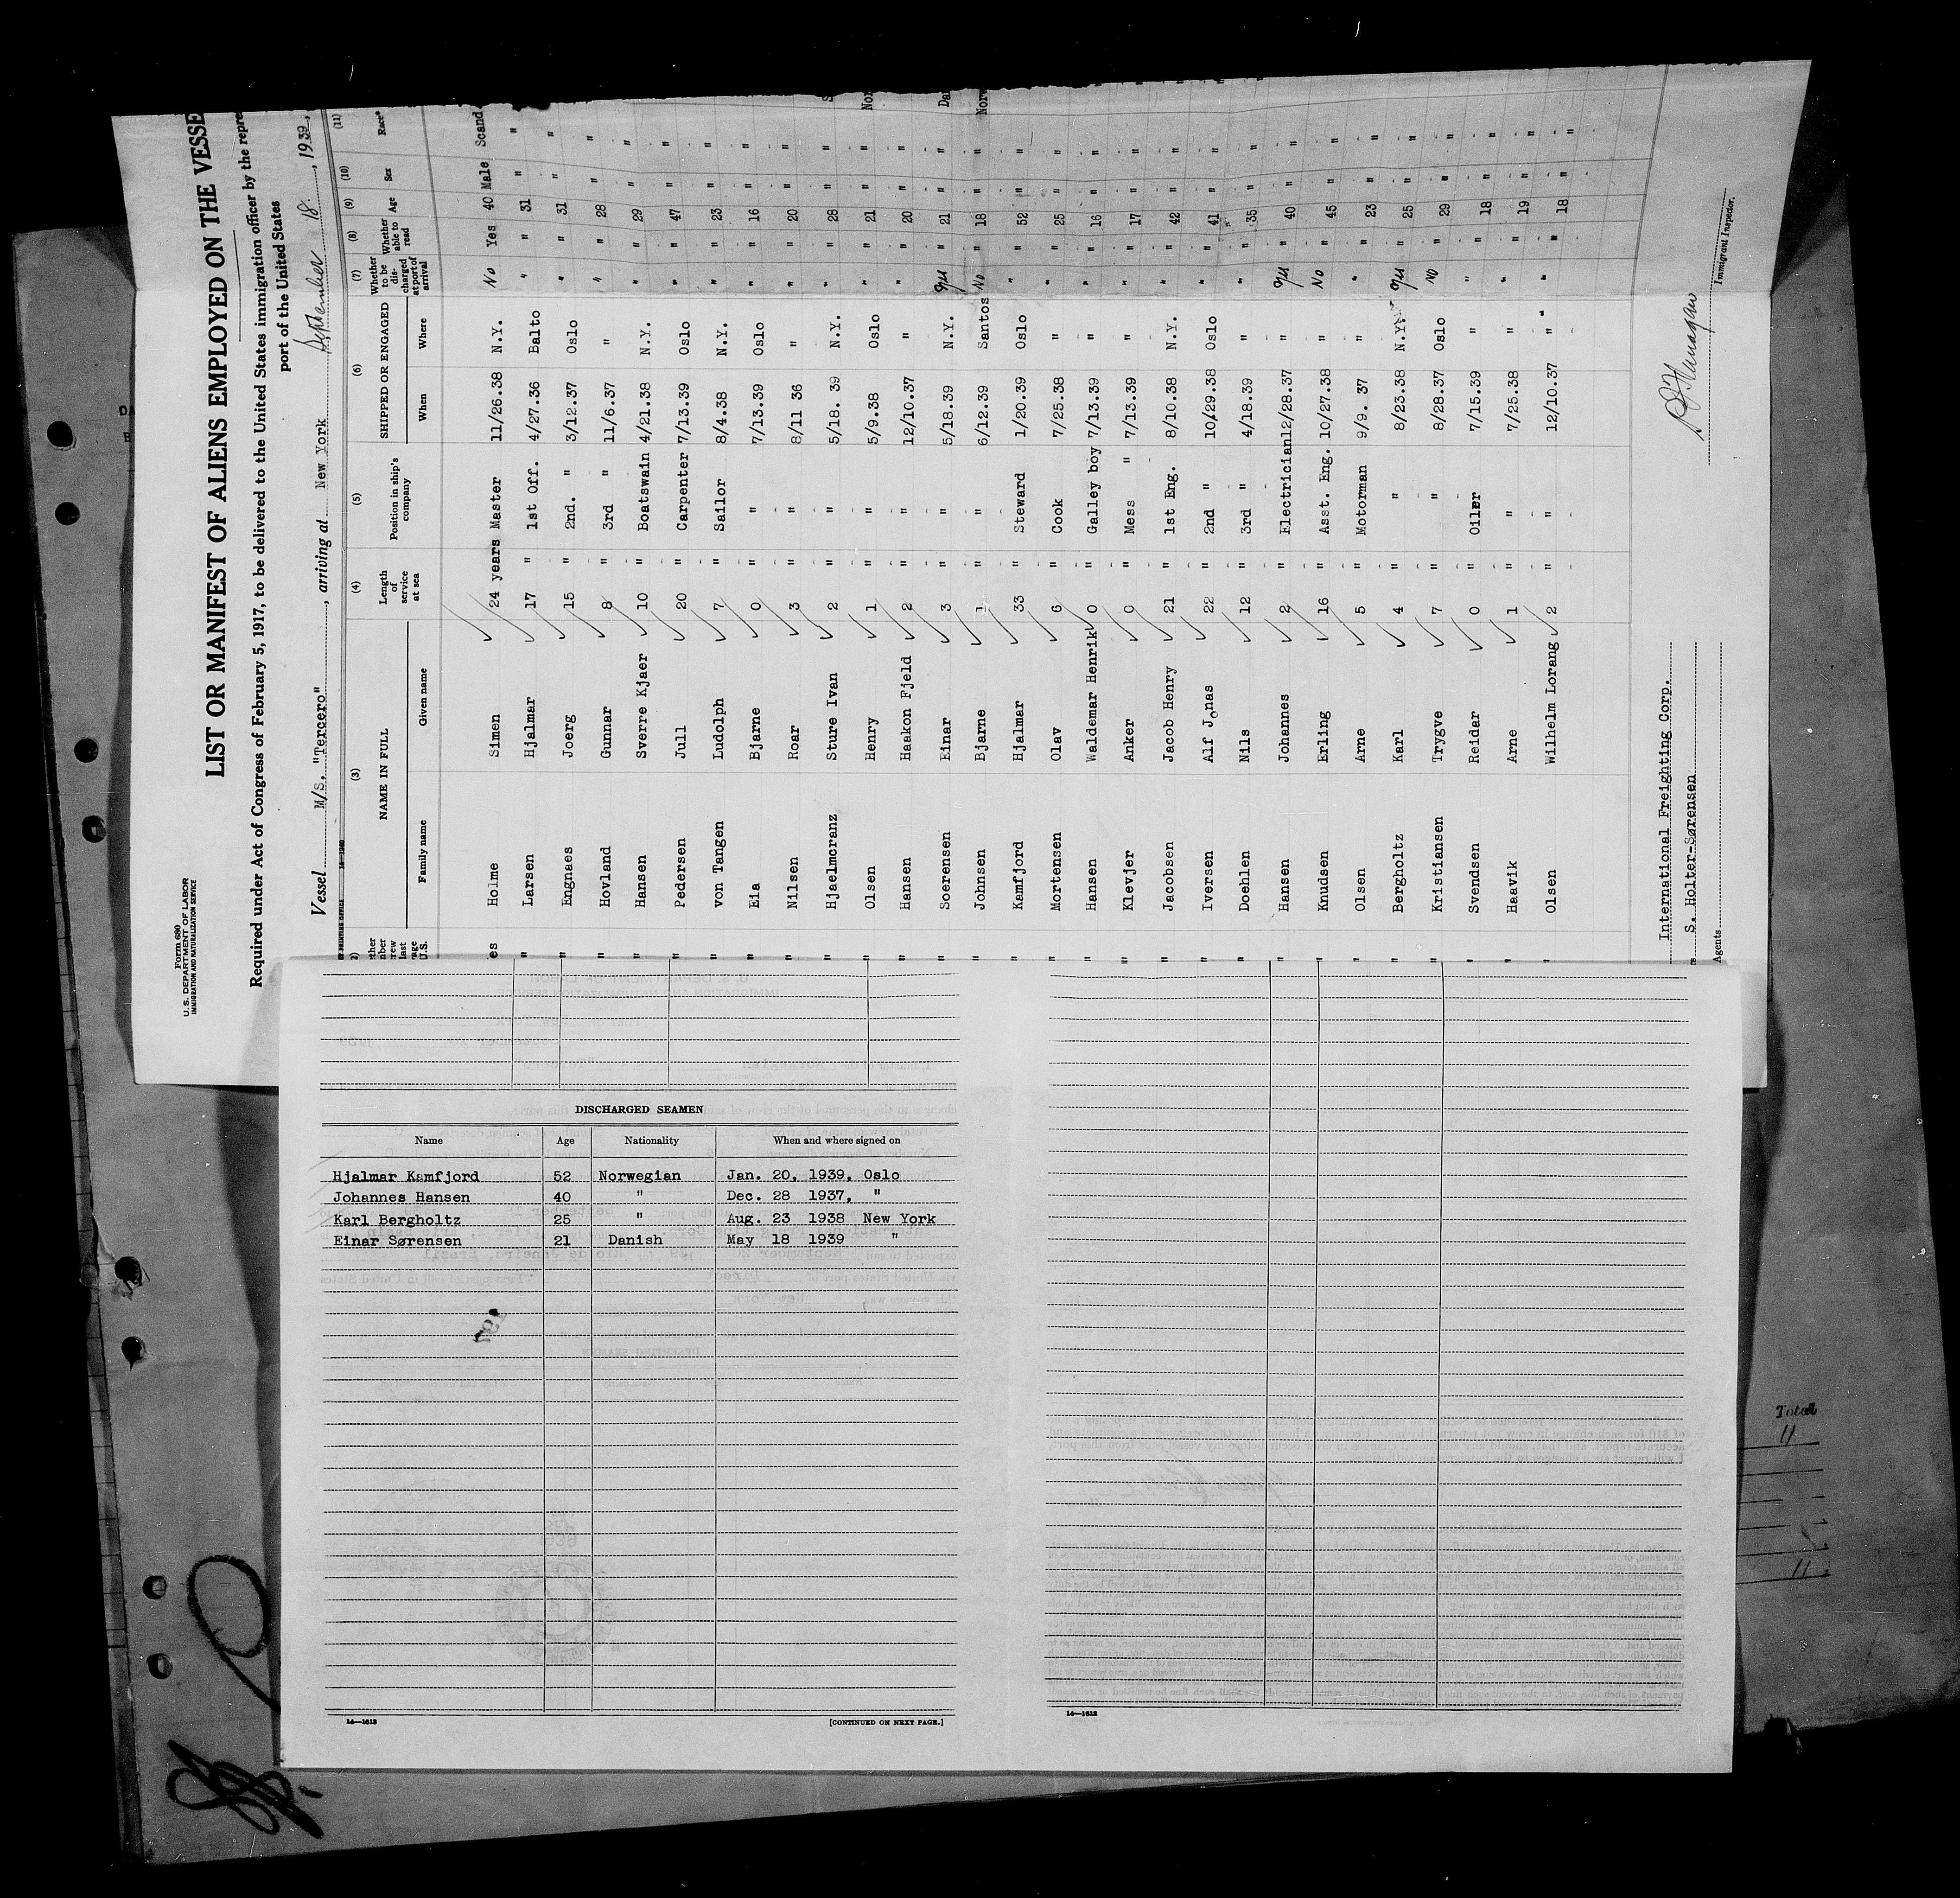 Form 680
U. S. DEPARTMENT OF LABOR
IMMIGRATION AND NATURALIZATION SERVICE
LIST OR MANIFEST OF ALIENS EMPLOYED ON THE VESSE
Required under Act of Congress of February 5, 1917, to be delivered to the United States immigration officer by the repre
port of the United States
Vessel M/S. "Tercero", arriving at New York September 18, 1939,
(3) (4) (5) (6) (7) (8) (9) (10) (11)
NAME IN FULL Length of service at sea Position in ship's company SHIPPED OR ENGAGED Whether to be discharged at port of arrival Whether able to read Age Sex Race*
Family name Given name When Where
es Holme Simen 24 years Master 11/26.38 N.Y. No Yes 40 Male Scand
" Larsen Hjalmar 17 " 1st Off. 4/27.36 Balto " " 31 " "
" Engnaes Joerg 15 " 2nd. " 3/12.37 Oslo " " 31 " "
" Hovland Gunnar 8 " 3rd " 11/6.37 " " " 28 " "
" Hansen Sverre Kjaer 10 " Boatswain 4/21.38 N.Y. " " 29 " "
" Pedersen Jull 20 " Carpenter 7/13.39 Oslo " " 47 " "
" von Tangen Ludolph 7 " Sailor 8/4.38 N.Y. " " 23 " "
" Eia Bjarne 0 " " 7/13.39 Oslo " " 16 " "
" Nilsen Roar 3 " " 8/11 36 " " " 20 " "
" Hjaelmcranz Sture Ivan 2 " " 5/18. 39 N.Y. " " 28 " " S
" Olsen Henry 1 " " 5/9.38 Oslo " " 21 " " Nor
" Hansen Haakon Fjeld 2 " " 12/10.37 " " " 20 " "
" Soerensen Einar 3 " " 5/18.39 N.Y. yes " 21 " " Da
" Johnsen Bjarne 1 " " 6/12.39 Santos No " 18 " " Norw
" Kamfjord Hjalmar 33 " Steward 1/20.39 Oslo " " 52 " "
" Mortensen Olav 6 " Cook 7/25.38 " " " 25 " "
" Hansen Waldemar Henrik 0 " Galley boy 7/13.39 " " " 16 " "
" Klevjer Anker 0 " Mess " 7/13.39 " " " 17 " "
" Jacobsen Jacob Henry 21 " 1st Eng. 8/10.38 N.Y. " " 42 " "
" Iversen Alf Jonas 22 " 2nd " 10/29.38 Oslo " " 41 " "
" Doehlen Nils 12 " 3rd " 4/18.39 " " " 35 " "
" Hansen Johannes 2 " Electrician 12/28.37 " yes " 40 " "
" Knudsen Erling 16 " Asst. Eng. 10/27.38 " No " 45 " "
" Olsen Arne 5 " Motorman 9/9. 37 " " " 23 " "
" Bergholtz Karl 4 " " 8/23.38 N.Y. yes " 25 " "
" Kristiansen Trygve 7 " " 8/28.37 Oslo No " 29 " "
" Svendsen Reidar 0 " Oiler 7/15.39 " " " 18 " "
" Haavik Arne 1 " " 7/25.38 " " " 19 " "
" Olsen Wilhelm Lorang 2 " " 12/10.37 " " " 18 " "
International Freighting Corp.
S. Holter-Sørensen
Agents
Immigrant Inspector.
DISCHARGED SEAMEN
Name Age Nationality When and where signed on
Hjalmar Kamfjord 52 Norwegian Jan. 20, 1939, Oslo
Johannes Hansen 40 " Dec. 28 1937, "
Karl Bergholtz 25 " Aug. 23 1938 New York
Einar Sørensen 21 Danish May 18 1939 "
14—1618 [CONTINUED ON NEXT PAGE.]
14—1618
Total
11
11